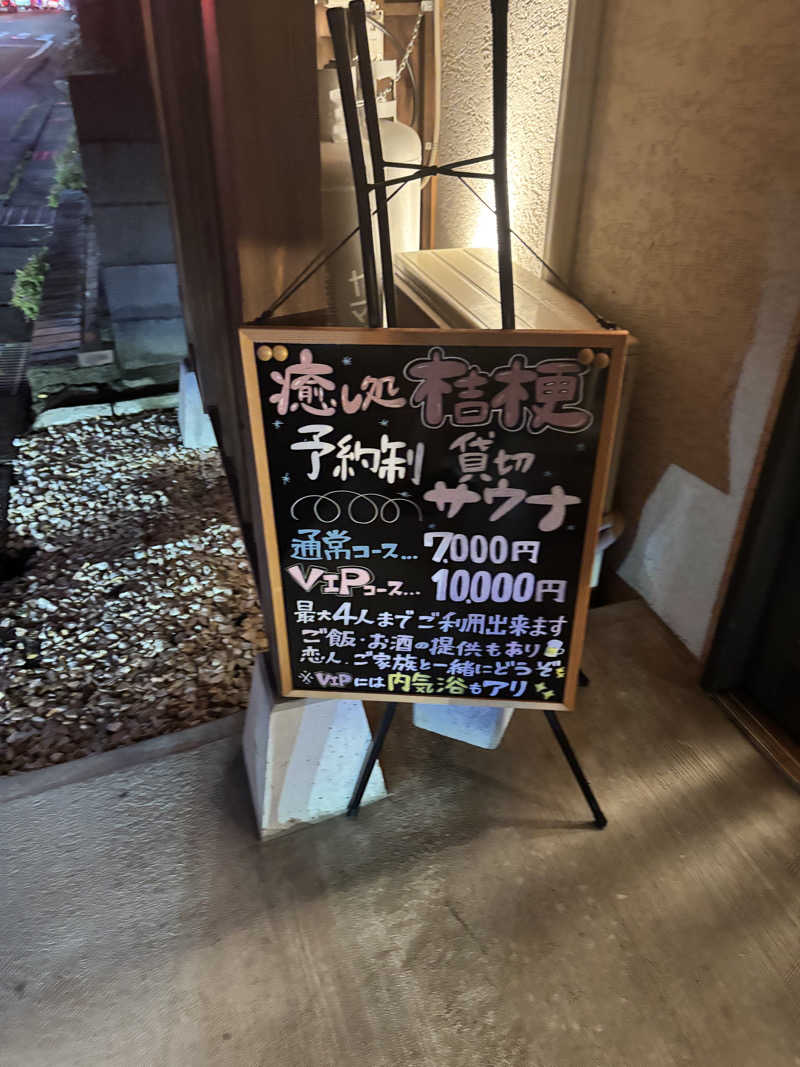 癒し処 桔梗
予約制 貸切
サウナ
通常コース... 7,000円
VIPコース... 10,000円
最大4人までご利用出来ます
ご飯・お酒の提供もあり
恋人、ご家族と一緒にどうぞ
※VIPには内気浴もアリ